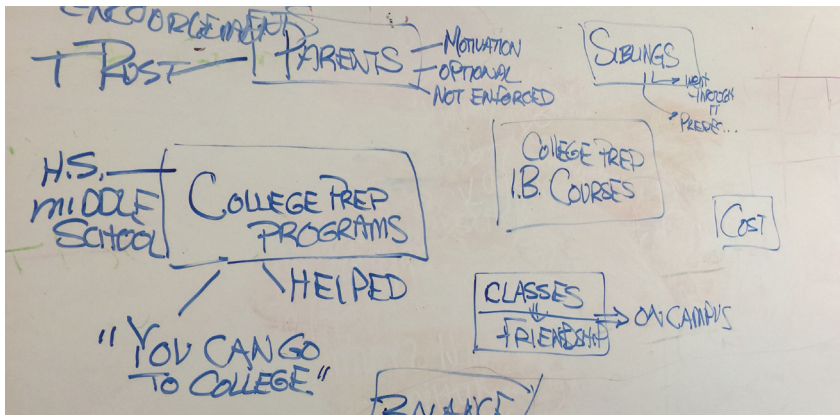 ENCOURGEMENTS
TRUST
PARENTS
MOTIVATION
OPTIONAL
NOT ENFORCED
SIBLINGS
WENT
THROUGH
IT
H.S.
MIDDLE
SCHOOL
COLLEGE PREP
PROGRAMS
HELPED
"YOU CAN GO
TO COLLEGE."
COLLEGE PREP
I.B. COURSES
COST
CLASSES
FRIENDSHIP
ON CAMPUS
BALANCE